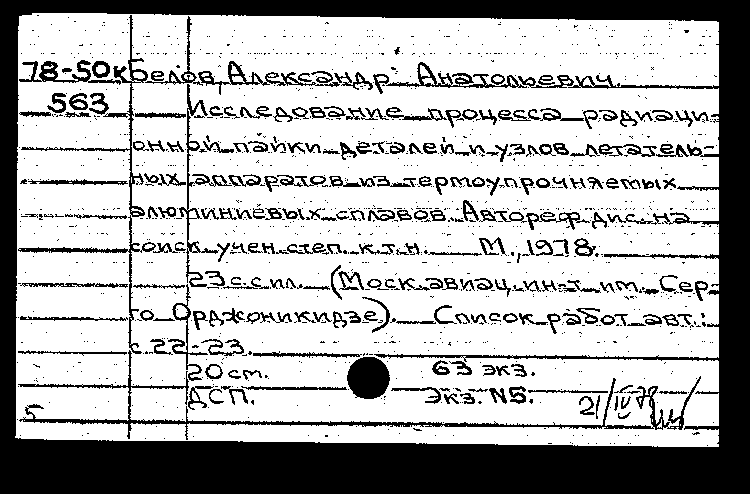 78-50к Белов, Александр Анатольевич.
563 Исследование процесса радиаци-
онной пайки деталей и узлов летатель-
ных аппаратов из термоупрочняемых
алюминиевых сплавов. Автореф. дис. на
соиск. учен. степ. к.т.н. М., 1978.
23 с. с ил. (Моск. авиац. ин-т им. Сер-
го Орджоникидзе). Список работ авт.:
с. 22-23.
20 см. 63 экз.
ДСП. Экз. N5.
5 21/IV 78